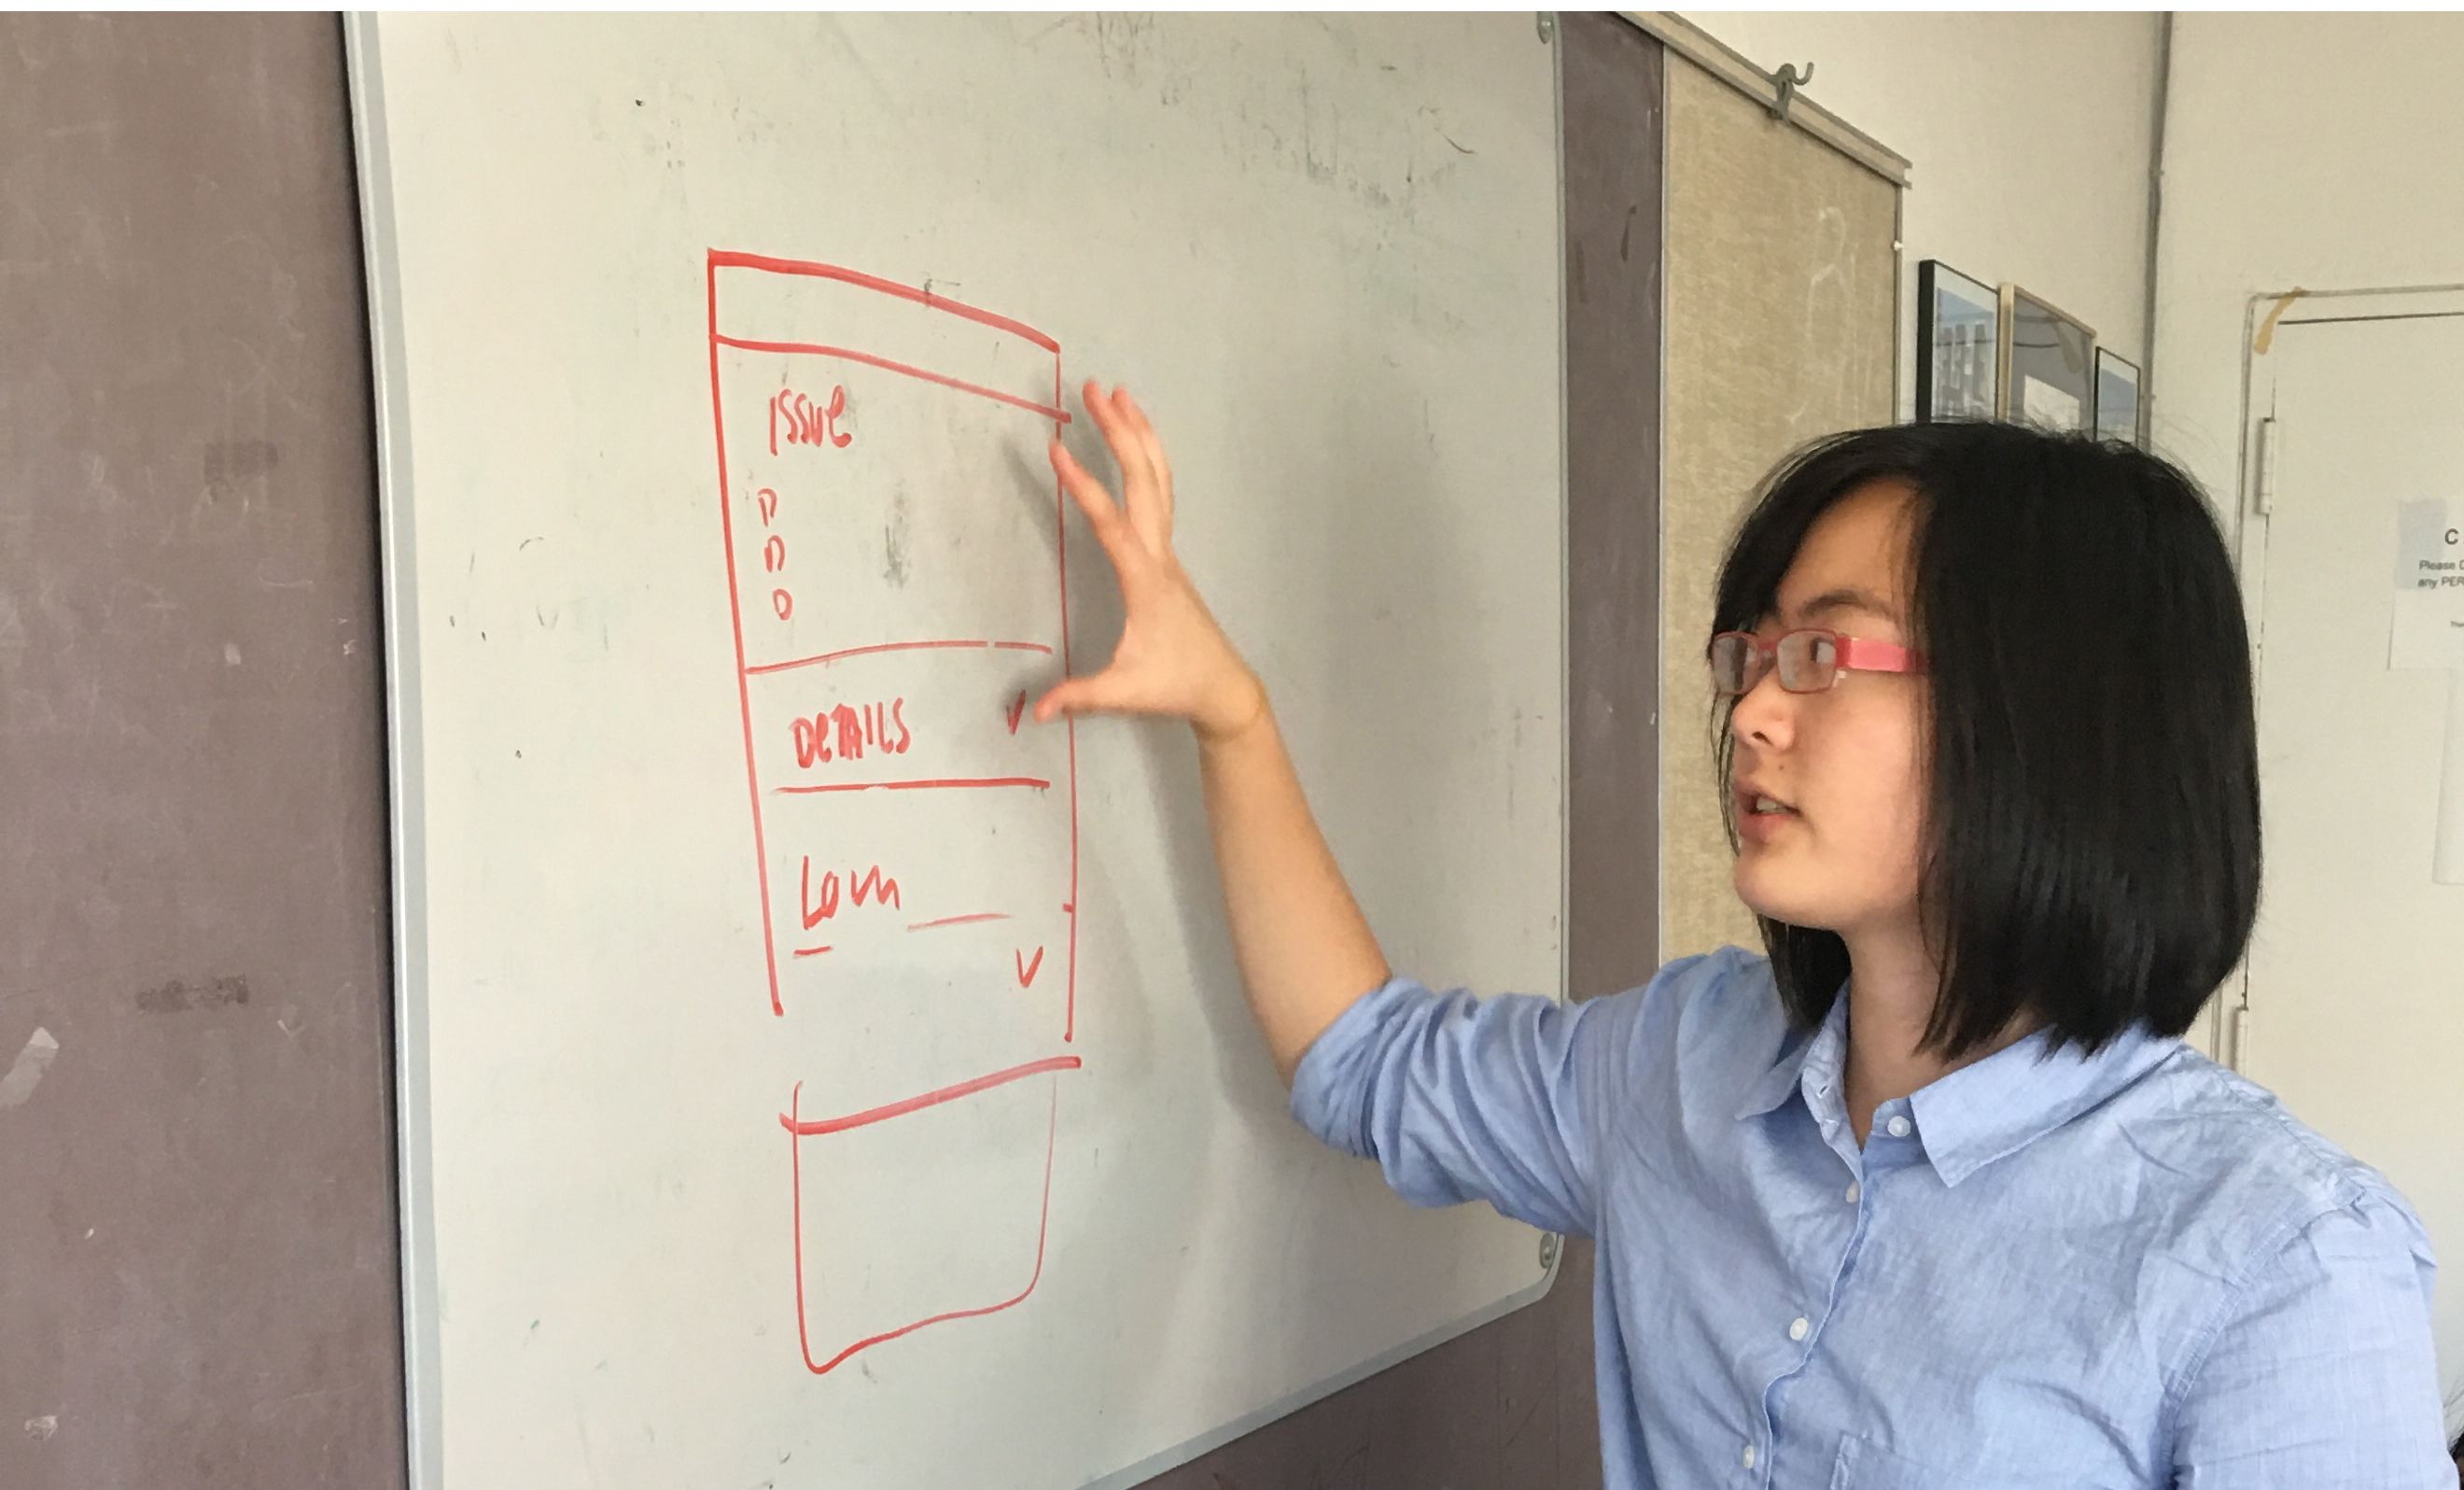 Issue
DETAILS
C
Please
any PER